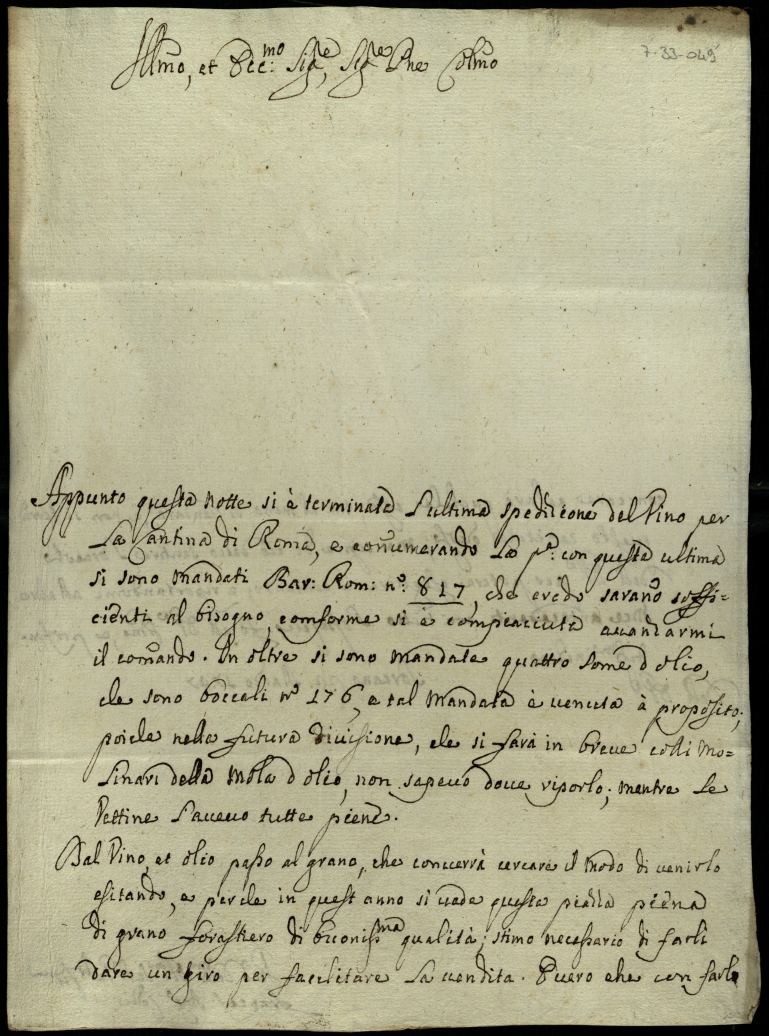 7-33-049
Illmo, et Ecc:mo Sigre, Sigre Pne Colmo
Appunto questa notte si è terminata L'ultima spedizione del Vino per
La Cantina di Roma, e connumerando La pa: con questa ultima
si sono mandati Bar: Rom: no: 817, che credo sarano soffi=
cienti al bisogno, comforme si è compiacciuta auanzarmi
il comando. In oltre si sono mandate quattro some d'olio,
che sono boccali no 176, e tal mandata è venuta à proposito;
poiche nella futura diuisione, che si farà in breue colli Mo=
linari della Mola d'olio, non sapeuo doue riporlo; mentre Le
Vettine L'aueuo tutte piene.
Dal Vino, et olio passo al grano, che conuerrà cercare il modo di venirlo
esitando, e perche in quest'anno si uede questa piazza piena
di grano forastiero di buonissma qualità; stimo necessario di farli
dare un giro per facilitare La uendita. Euero che con farlo